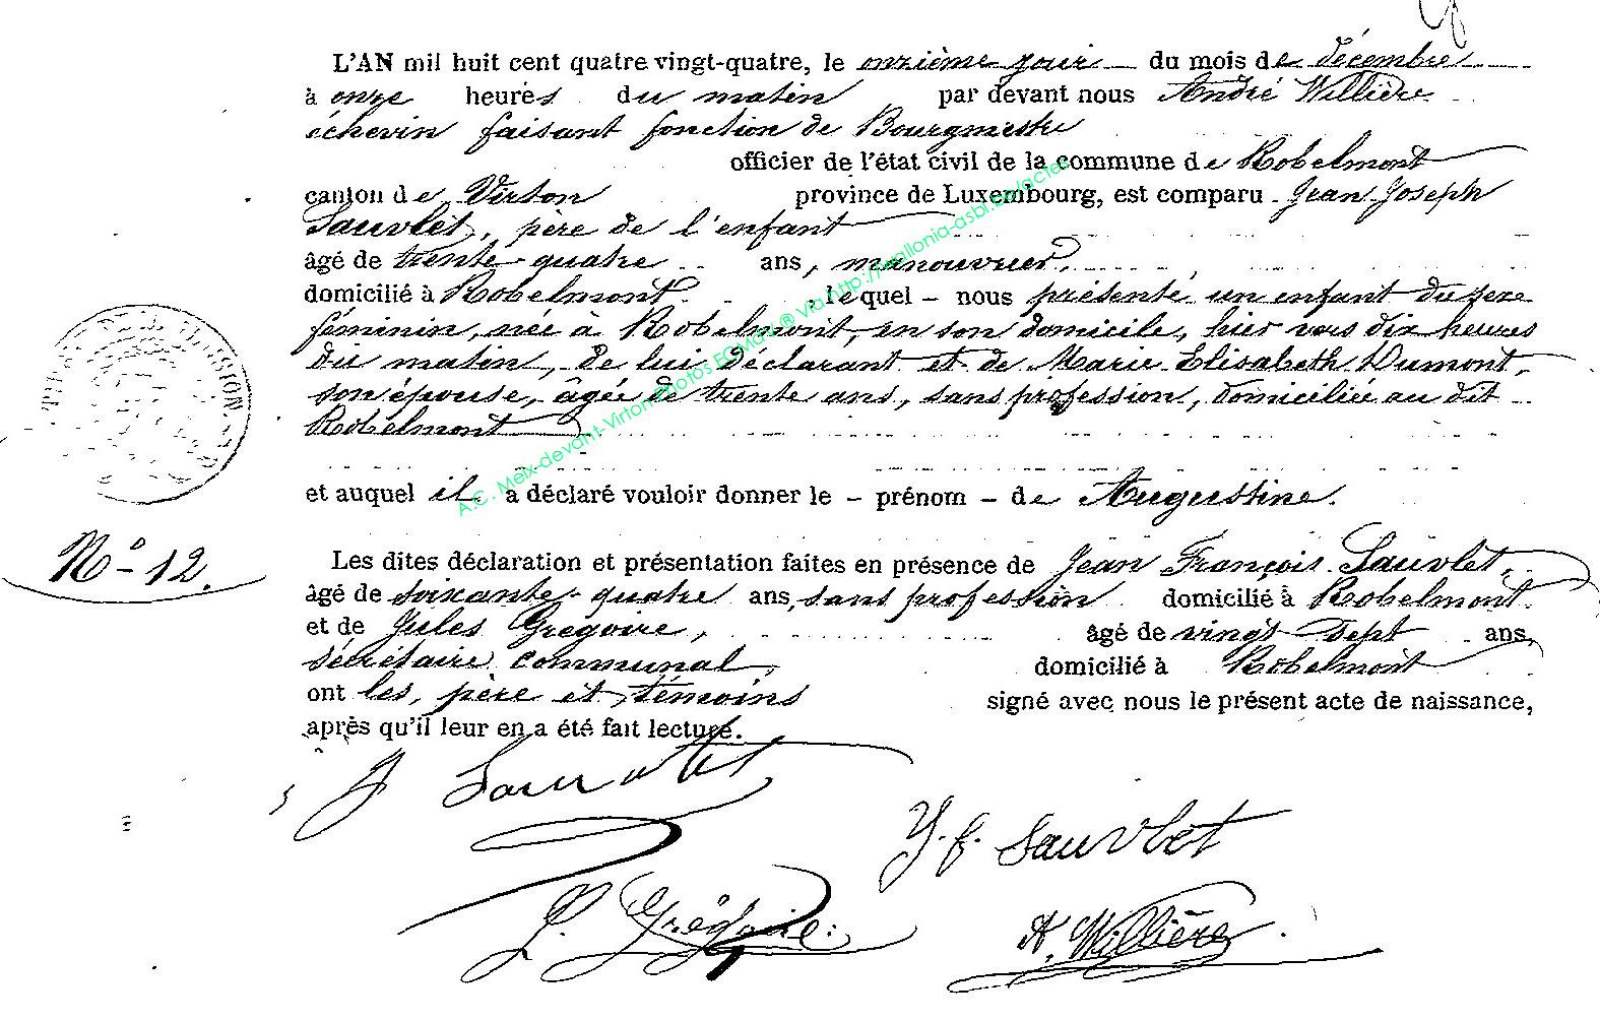 L'AN mil huit cent quatre vingt-quatre, le onzième jour du mois de décembre
à onze heures du matin par devant nous André Willière
échevin faisant fonction de Bourgmestre
officier de l'état civil de la commune de Robelmont
canton de Virton province de Luxembourg, est comparu Jean Joseph
Sauvlet, père de l'enfant
âgé de trente-quatre ans, manouvrier,
domicilié à Robelmont, lequel – nous présenté un enfant du sexe
féminin, née à Robelmont, en son domicile, hier vers dix heures
du matin, de lui déclarant et de Marie Elisabeth Dumont,
son épouse, âgée de trente ans, sans profession, domiciliée au dit
Robelmont
et auquel il a déclaré vouloir donner le – prénom – de Augustine.
N° - 12.
Les dites déclaration et présentation faites en présence de Jean François Sauvlet,
âgé de soixante-quatre ans, sans profession domicilié à Robelmont
et de Jules Grégoire, âgé de vingt-sept ans,
secrétaire communal, domicilié à Robelmont
ont les, père et témoins signé avec nous le présent acte de naissance,
après qu'il leur en a été fait lecture.
J Sauvlet
J. f. Sauvlet
J. Grégoire
A. Willière
A.C. Meix-devant-Virton Photos EGMG ® Via http://wallonia-asbl.be/actes